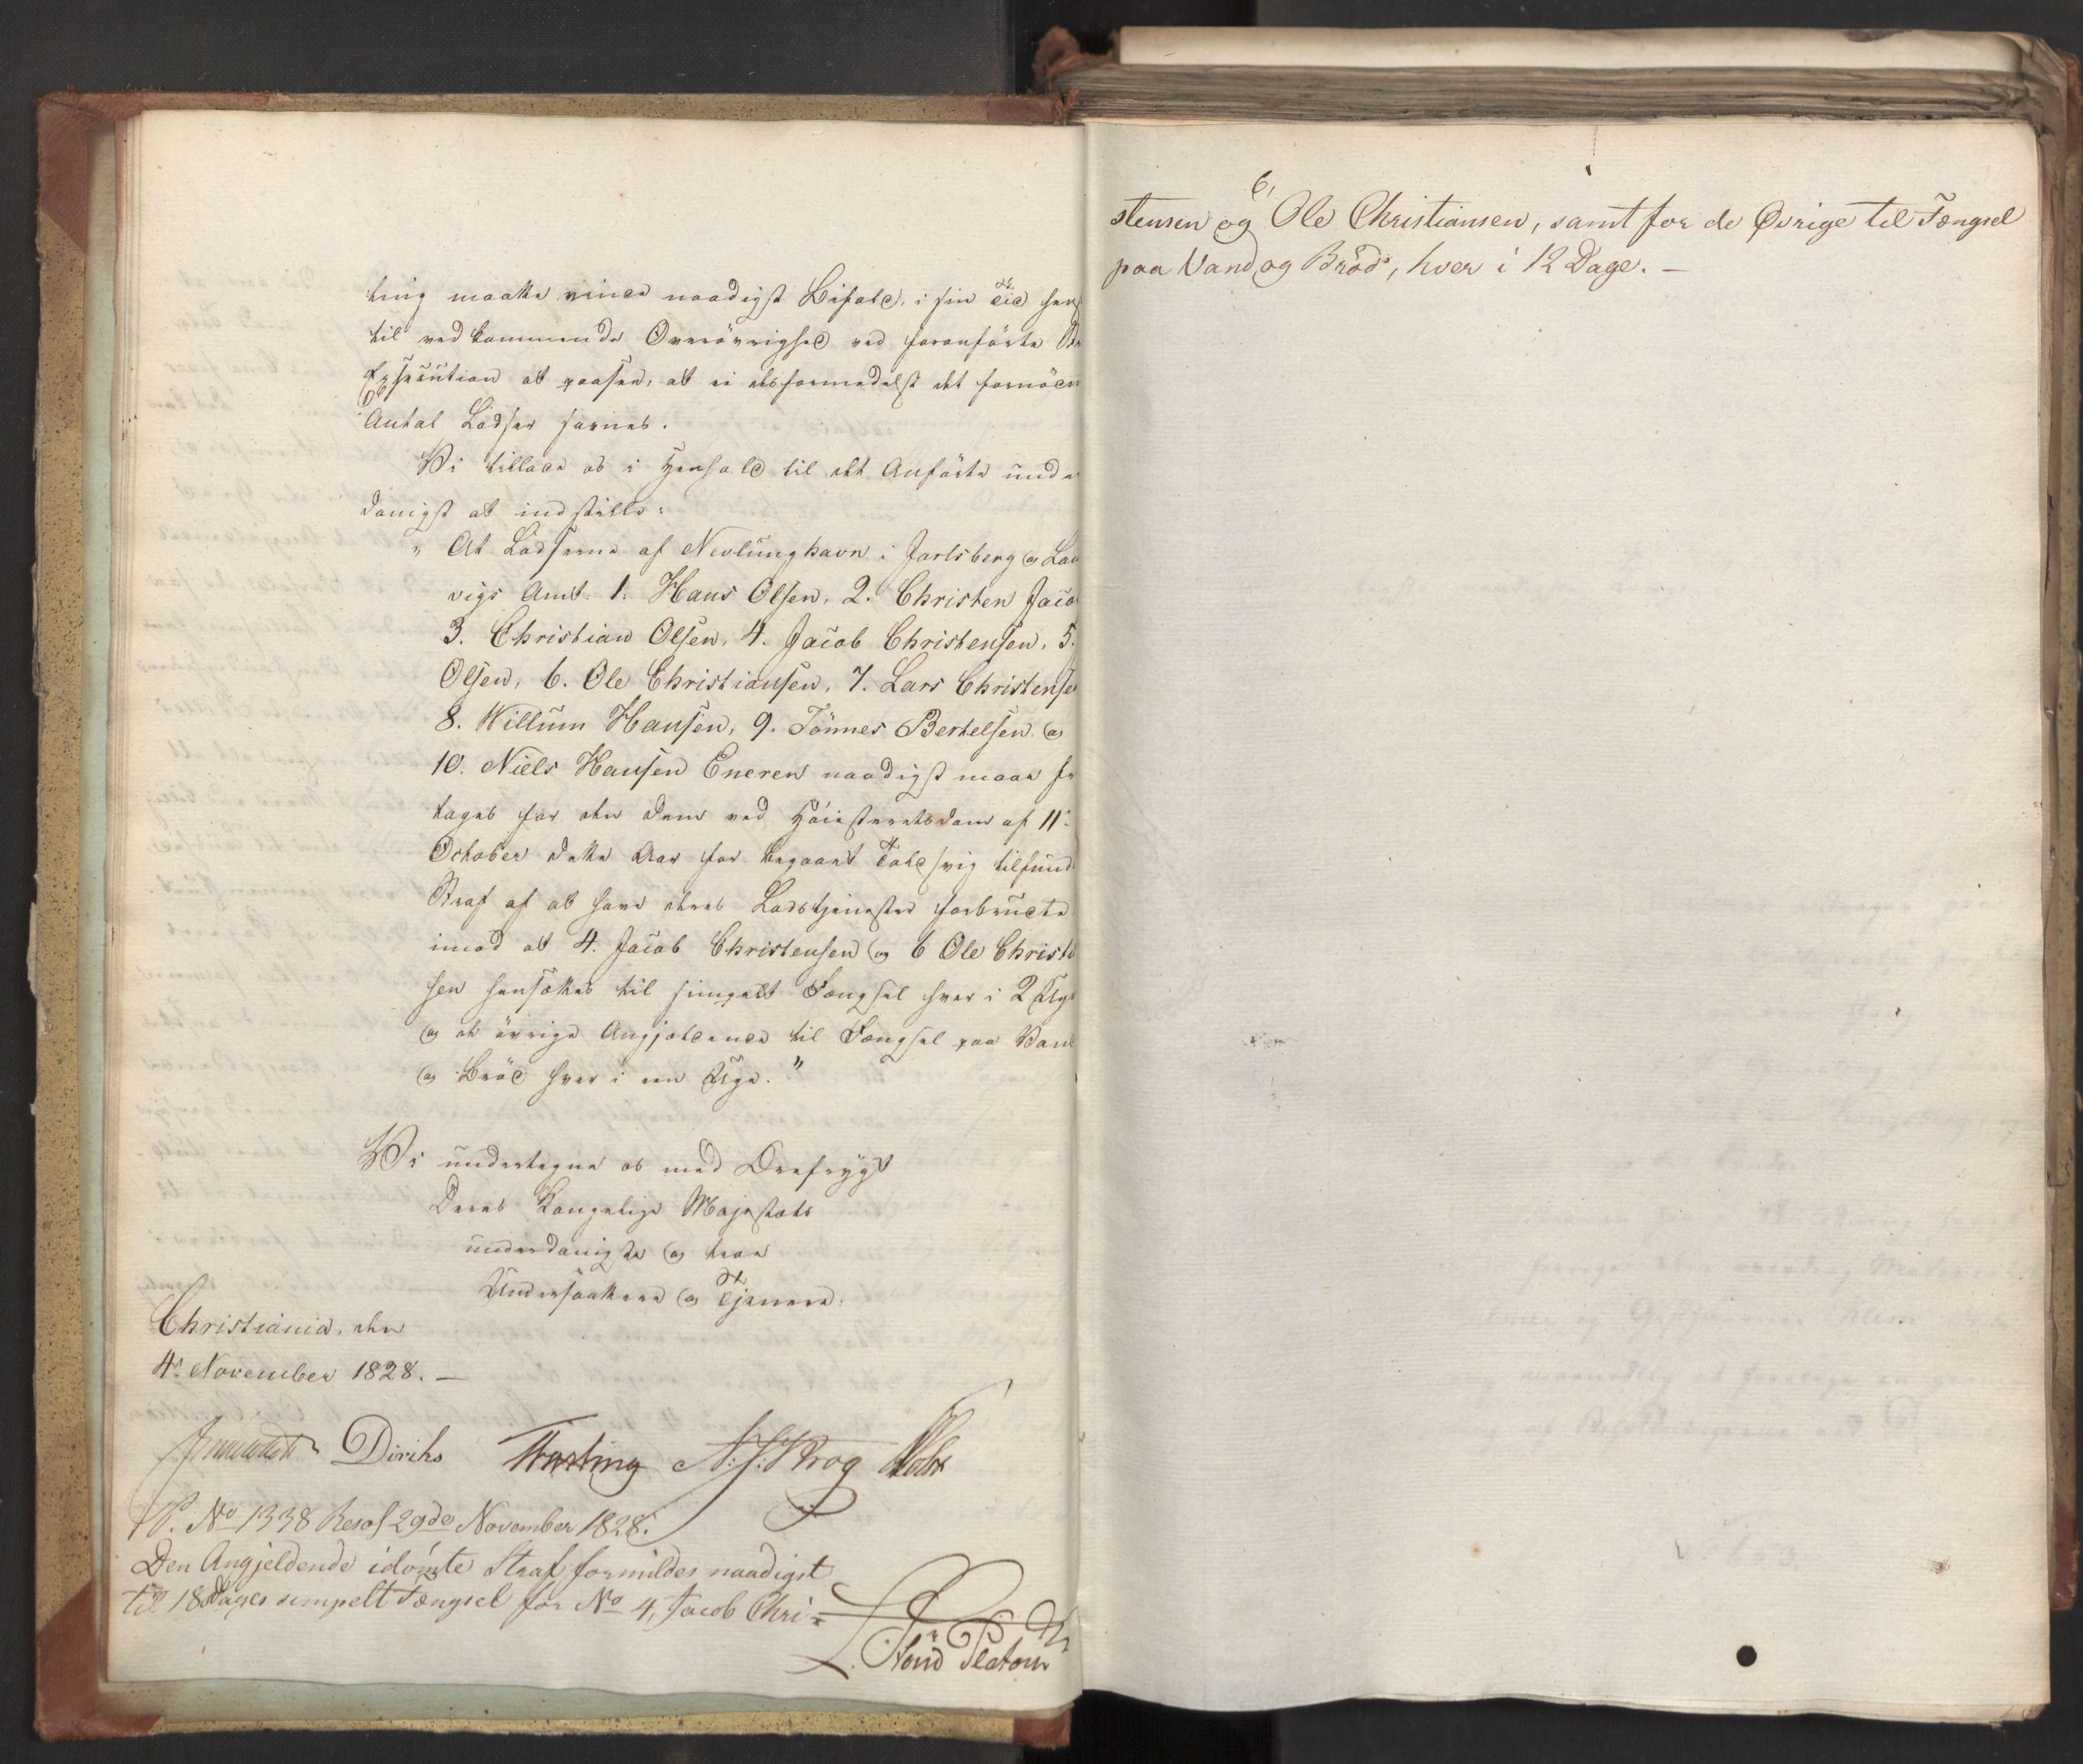 ting maatte vinde naadigst Bifald, i sin Tid hens
til vedkommende Overövrighed ved foranförte
Exsecution at paasee, at ei desformedelst det fornödn
Antal Lodser savnes.
Vi tillade os i Henhold til det Anförte under
danigst at indstille:
" At Lodserne af Nevlunghavn i Jarlsberg og Lau
vigs Amt: 1. Hans Olsen, 2. Christen Jaco
3. Christian Olsen, 4. Jacob Christensen, 5.
Olsen, 6. Ole Christiansen, 7. Lars Christense
8. Willum Hansen, 9. Tönnes Bertelsen og
10. Niels Hansen Eneren naadigst maae fr
tages for den dem ved Höiesteretsdom af 11te
October dette Aar for begaaet Toldsvig tilfund
Straf af at have deres Lodstjenester forbrudte
imod at 4. Jacob Christensen og 6 Ole Christi
sen hensættes til simpelt Fængsel hver i 2 Uge
og de övrige Angjeldende til Fængsel paa Vand
og Bröd hver i een Uge."
Vi undertegne os med Ærefrygt
Deres Kongelige Majestæts
underdanigste og troe
Undersaatter og Tjenere.
Christiania, den
4de November 1828. —
Diriks N. J. Krog
P. No 1338 Resol 29de November 1828.
Den Angjeldende idömte Straf formildes naadigst
til 18 Dages simpelt Fængsel for No 4, Jacob Chri-
stensen og 6, Ole Christiansen, samt for de Øvrige til Fængsel
paa Vand og Bröd, hver i 12 Dage. —